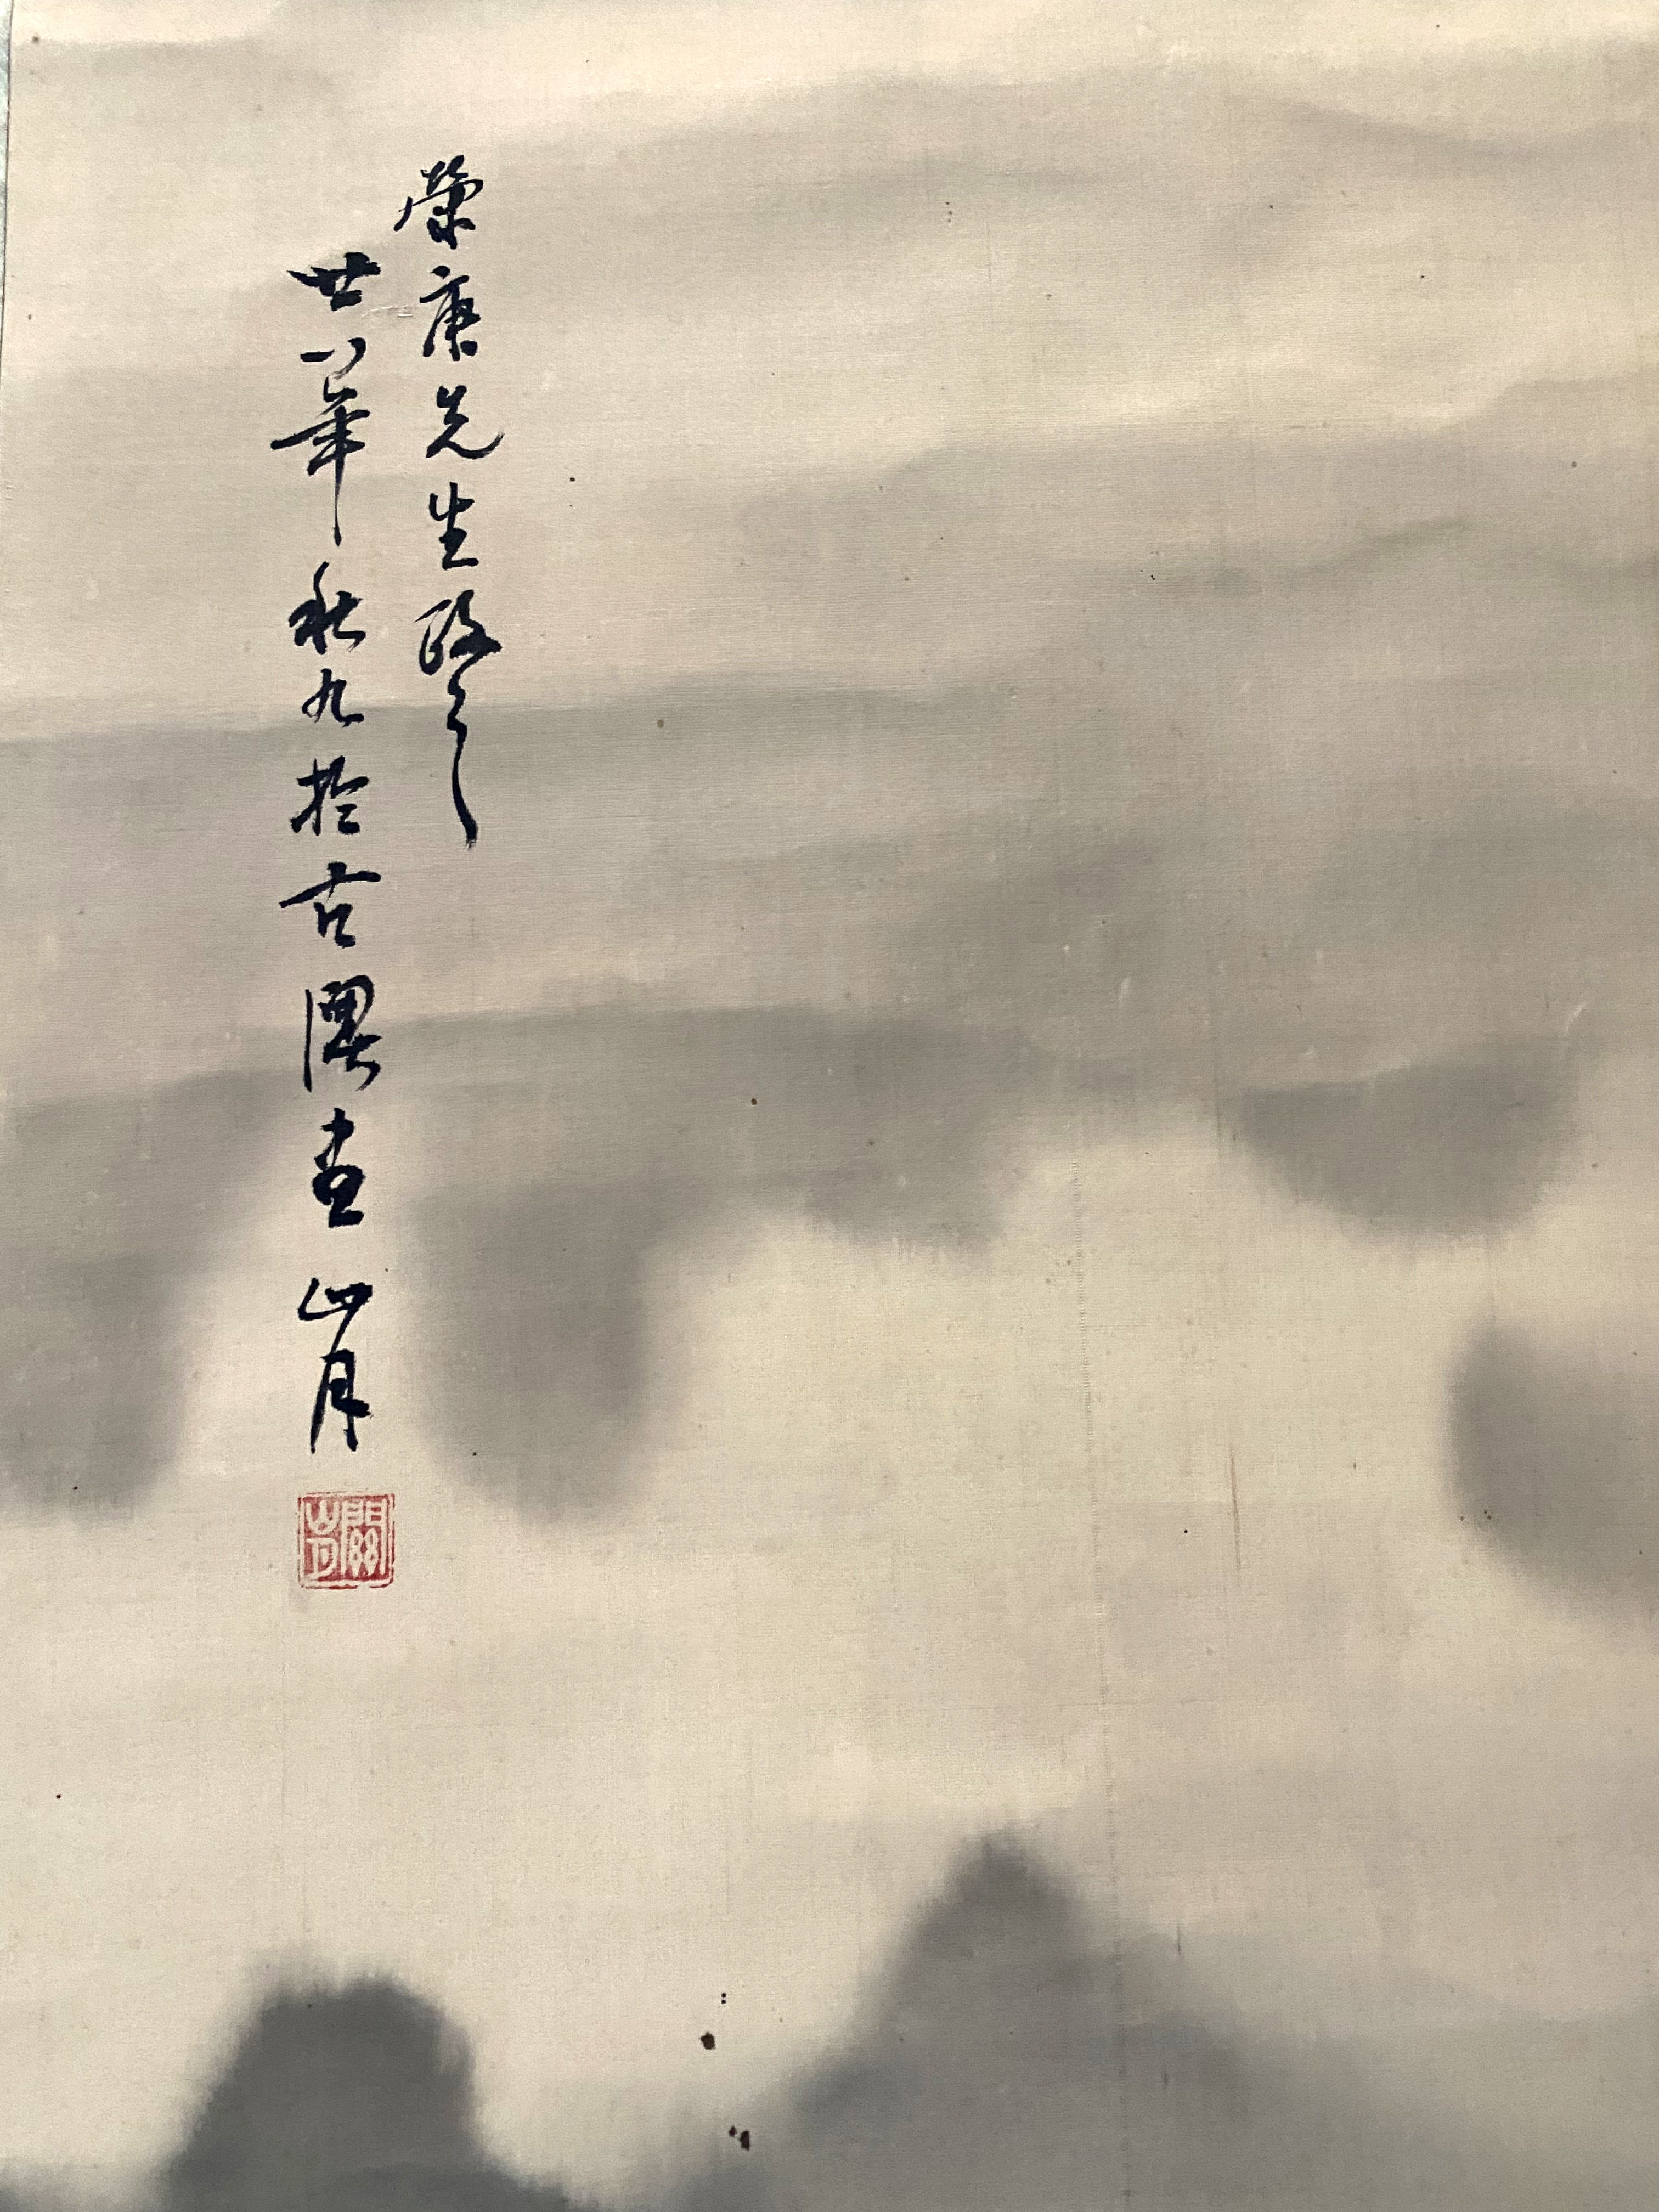 榮康先生政之
廿八年秋九於古澳堂 山月
關山月